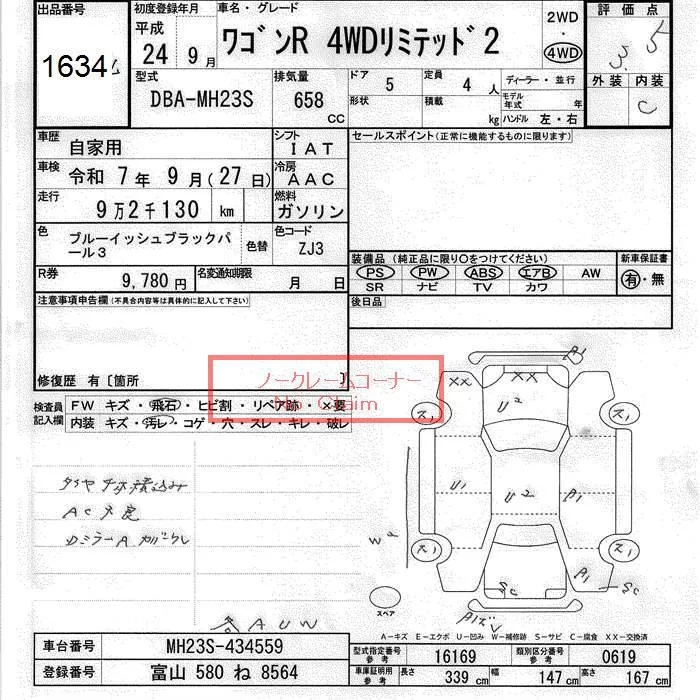 出品番号 初度登録年月 車名・グレード 評価点
1634 平成 24 9月 ワゴンR 4WDリミテッド2 2WD ・ 4WD 3.5
型式 排気量 ドア 5 定員 4人 ディーラー・並行 外装 内装
DBA-MH23S 658 CC 形状 積載 kg モデル年式 年 C
ハンドル 左・右
車歴 自家用 シフト IAT セールスポイント(正常に機能するものに限ります)
車検 令和 7年 9月(27日) 冷房 AAC
走行 9万2千130 km 燃料 ガソリン
色 ブルーイッシュブラックパール3 色替 色コード ZJ3
装備品(純正品に限り○をつけてください) 新車保証書
PS PW ABS エアB AW 有・無
SR ナビ TV カワ
R券 9,780円 名変通知期限 月 日
後日品
注意事項申告欄(不具合内容等は具体的に記入して下さい)
修復歴 有〔箇所 〕
ノークレームコーナー
No Claim
検査員記入欄 FW キズ・飛石・ヒビ割・リペア跡・×要
内装 キズ・汚レ・コゲ・穴・スレ・キレ・破レ
A1
XX XX
U2
ス1 ス1
U1 U2 A1
ス1 ス1
A1
SC SC
スペア
AC不良
AUW
A-キズ E-エクボ U-凹み W-補修跡 S-サビ C-腐食 XX-交換済
車台番号 MH23S-434559 型式指定番号 参考 16169 類別区分番号 参考 0619
登録番号 富山 580 ね 8564 車庫証明用 参考 長さ 339 cm 幅 147 cm 高さ 167 cm